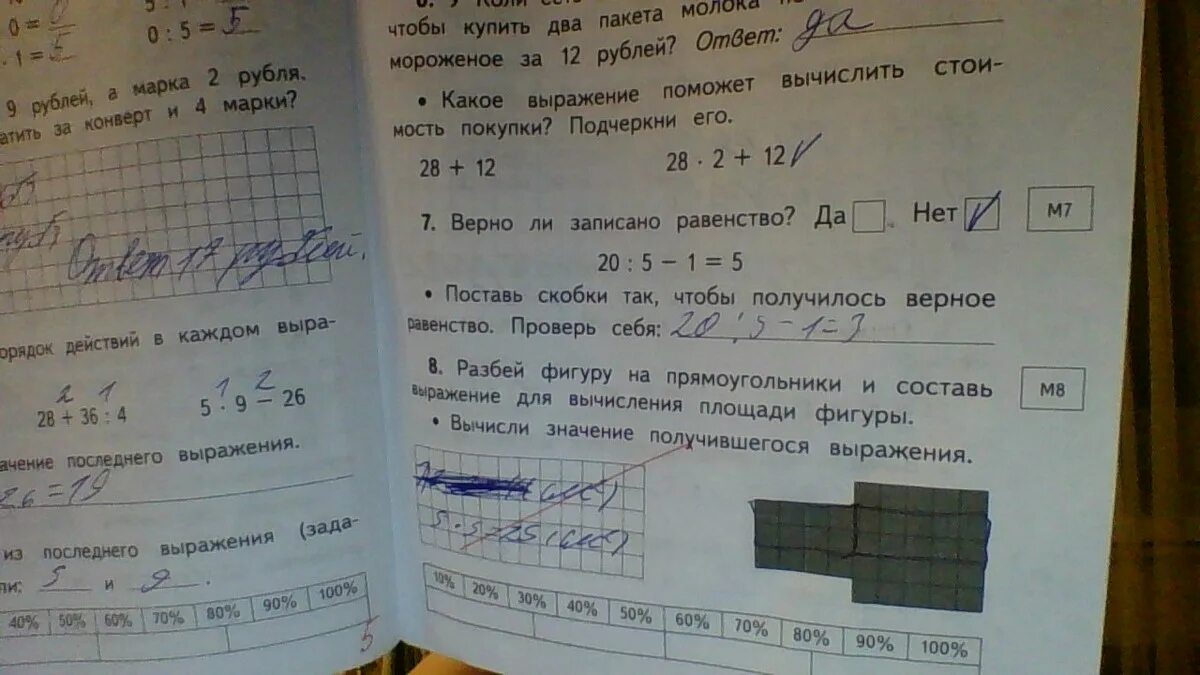 0 =
5
. 1 = 5
0 : 5 = 5
9 рублей, а марка 2 рубля.
атить за конверт и 4 марки?
Ответ 17 рублей.
орядок действий в каждом выра-
2 1
28 + 36 : 4
1 2
5 · 9 − 26
ачение последнего выражения.
26 = 19
из последнего выражения (зада-
ли: 5 и 9.
40% 50% 60% 70% 80% 90% 100%
5
чтобы купить два пакета молока
мороженое за 12 рублей? Ответ: да
• Какое выражение поможет вычислить стои-
мость покупки? Подчеркни его.
28 + 12
28 · 2 + 12 V
7. Верно ли записано равенство? Да Нет V
М7
20 : 5 − 1 = 5
• Поставь скобки так, чтобы получилось верное
равенство. Проверь себя: 20 : 5 − 1 = 3
8. Разбей фигуру на прямоугольники и составь
М8
выражение для вычисления площади фигуры.
• Вычисли значение получившегося выражения.
5 · 5 = 25
10% 20% 30% 40% 50% 60% 70% 80% 90% 100%